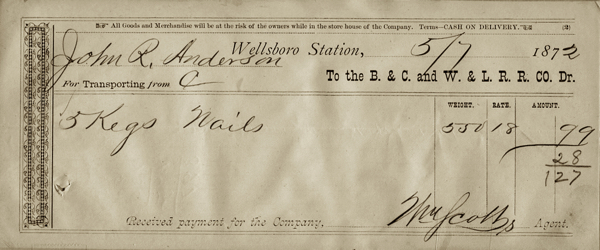 "All Goods and Merchandise will be at the risk of the owners while in the store house of the Company. Terms—CASH ON DELIVERY." (2)
John R. Anderson Wellsboro Station, 5/7 1872
To the B. & C. and W. & L. R. R. CO. Dr.
For Transporting from C
WEIGHT. RATE. AMOUNT.
5 Kegs Nails 550 18 99
28
127
Received payment for the Company, Wm Scott Agent.